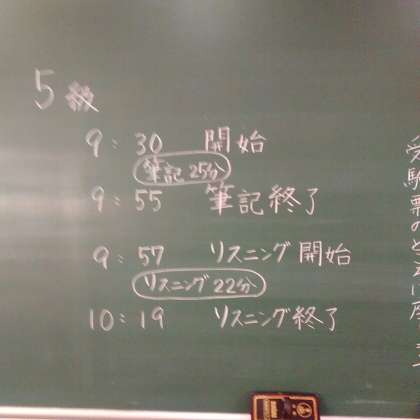 5級
9:30 開始
筆記25分
9:55 筆記終了
9:57 リスニング開始
リスニング22分
10:19 リスニング終了
受験票の